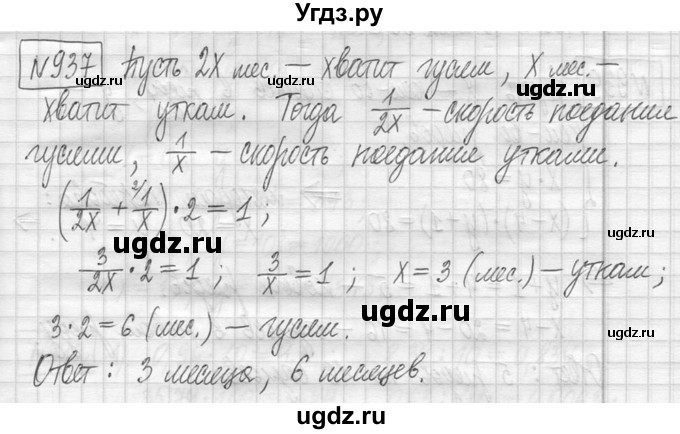 Угдз.ру
№937 Пусть 2x мес. — хватит гусям, x мес. —
хватит уткам. Тогда 1/2x — скорость поедания
гусями, 1/x — скорость поедания утками.
(1/2x + ²⁾1/x) · 2 = 1;
3/2x · 2 = 1; 3/x = 1; x = 3 (мес.) — уткам;
3 · 2 = 6 (мес.) — гусям.
Ответ: 3 месяца, 6 месяцев.
ugdz.ru
ugdz.ru
ugdz.ru
ugdz.ru
ugdz.ru
ugdz.ru
ugdz.ru
ugdz.ru
ugdz.ru